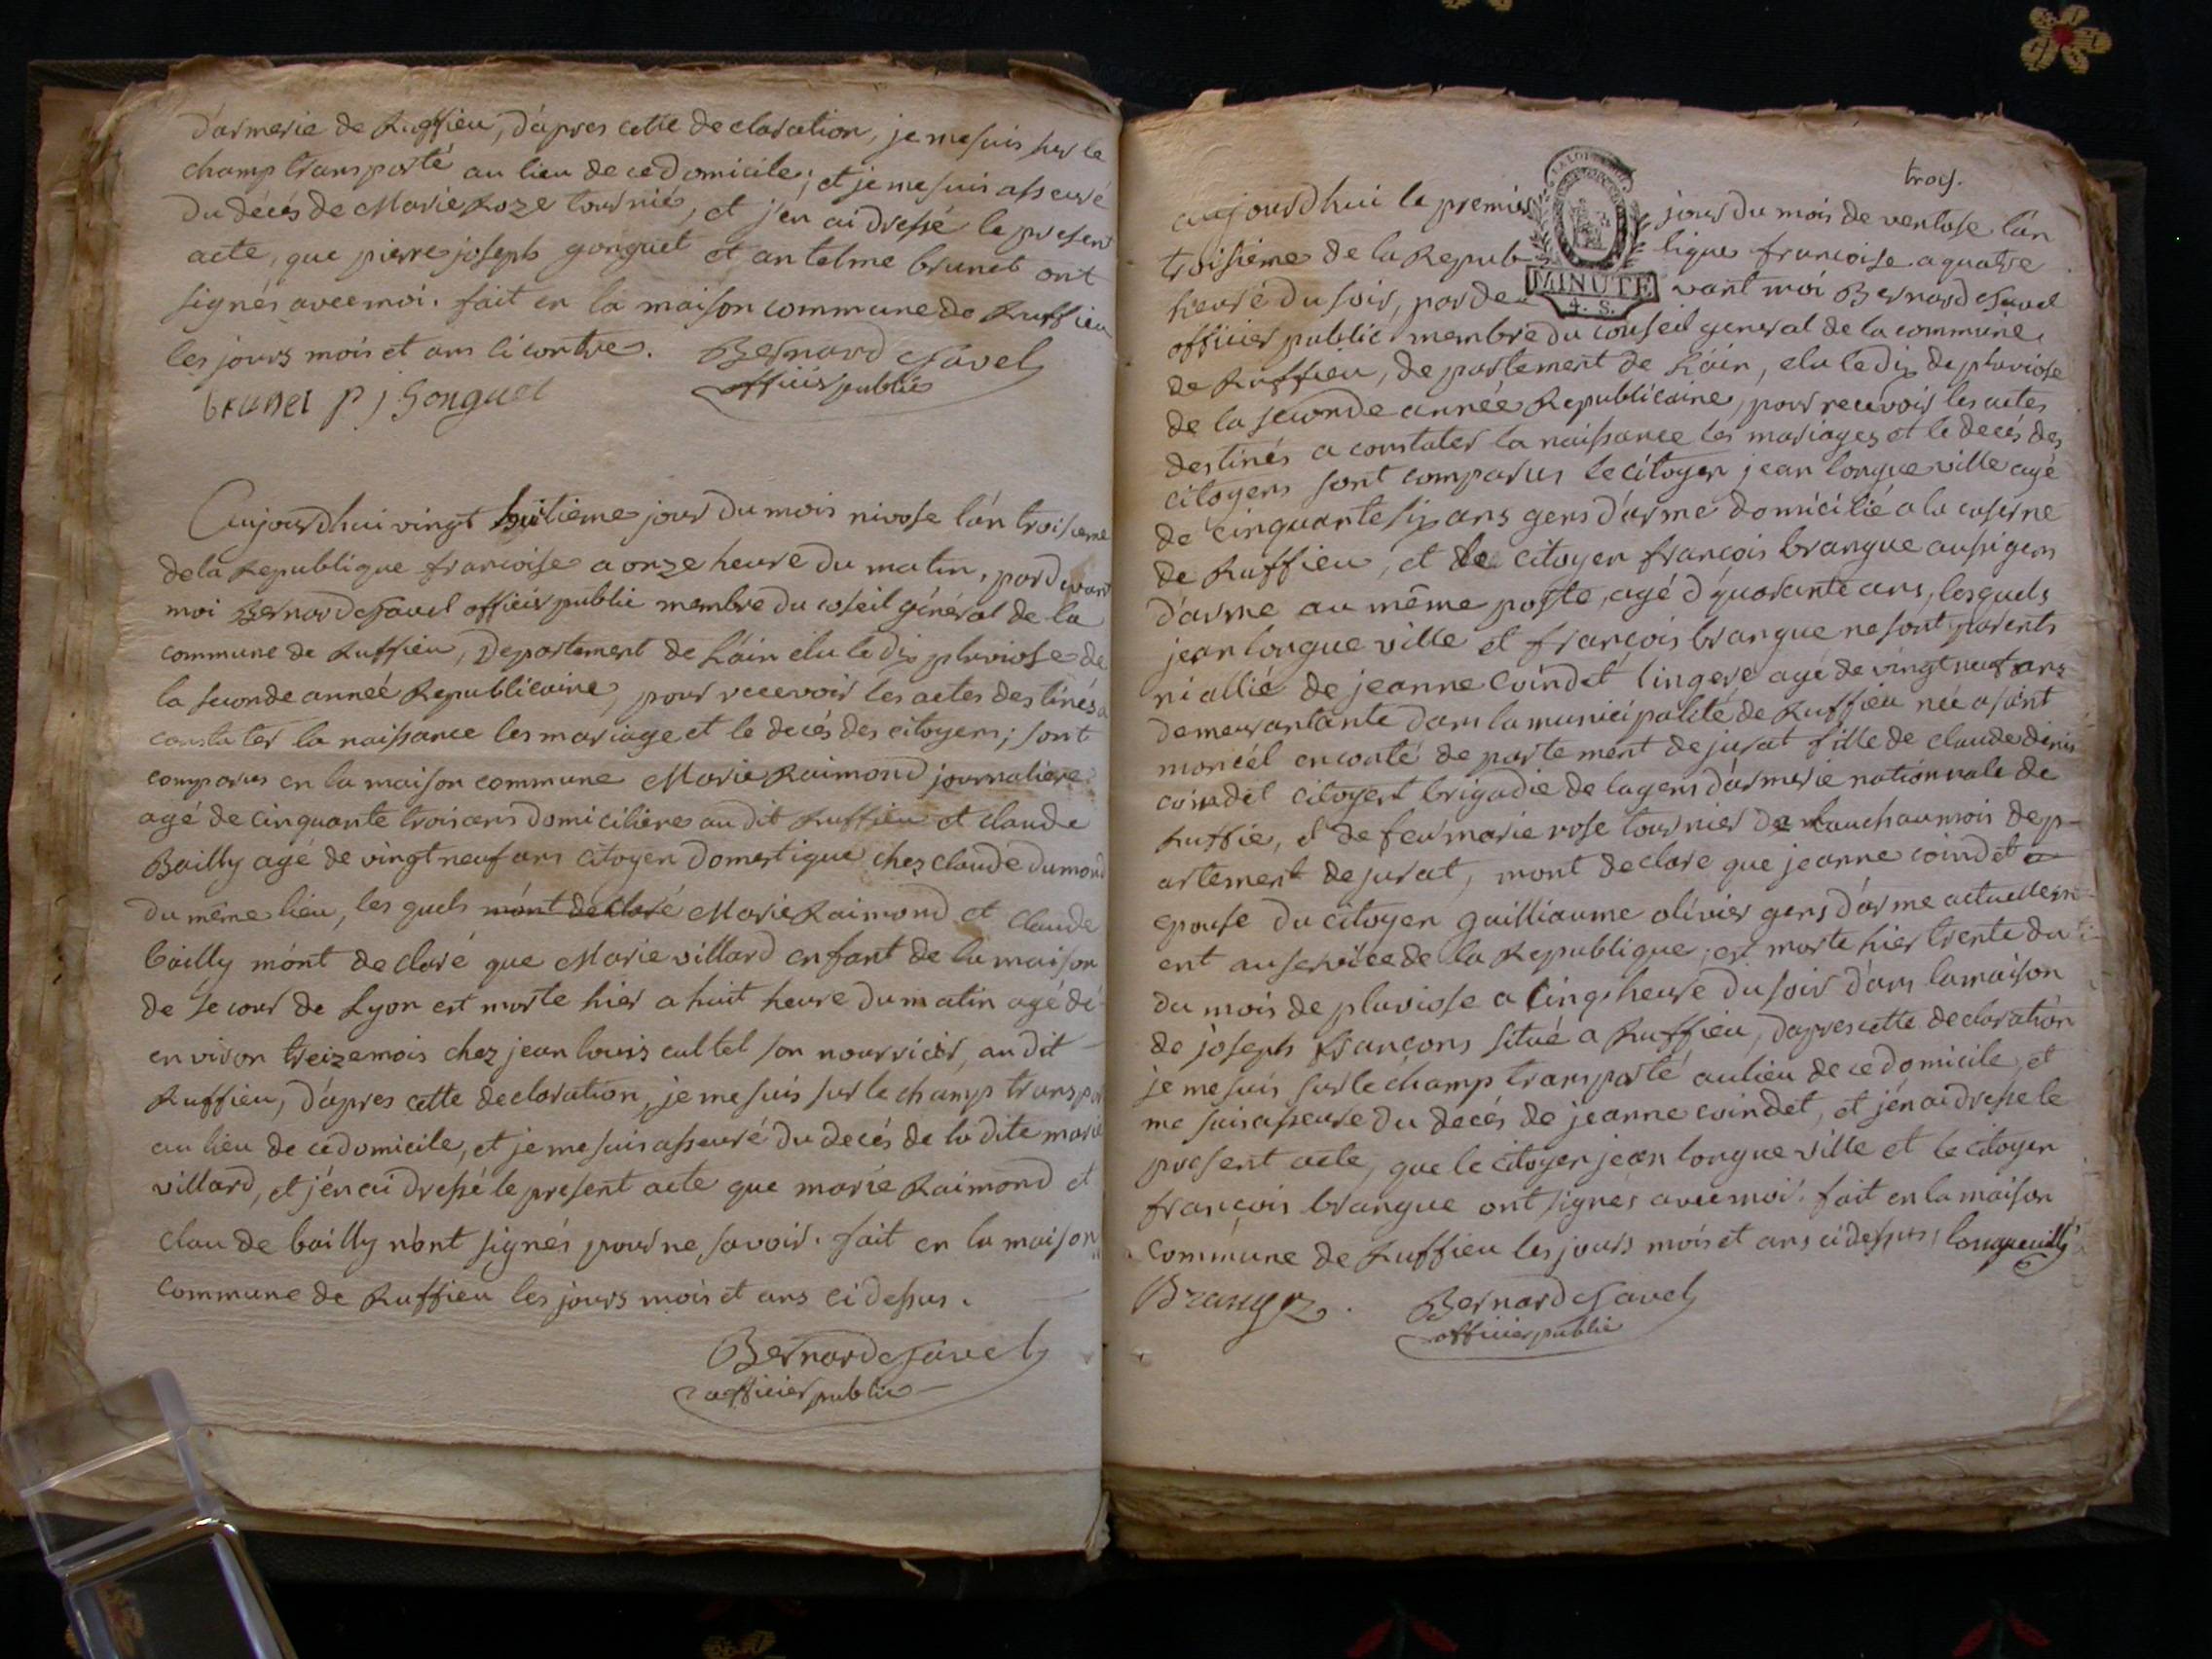 d'armerie de Ruffieu, d'apres cette declaration, je me suis sur le
champ transporté au lieu de ce domicile; et je me suis asseuré
du decés de Marie Roze tournié, et j'en ai dressé le present
acte, que pierre joseph gonguet et antelme brunet ont
signés avec moi. fait en la maison commune de Ruffieu
les jours mois et ans ci contre. Bernard Savel
brunet p j Gonguet officier public
Aujourdhui vingt huitieme jour du mois nivose l'an troisieme
de la Republique francoise a onze heure du matin, pardevant
moi Bernard Savel officier public membre du coseil général de la
commune de Ruffieu, Departement de L'ain elu le dix pluviose de
la seconde année Republicaine, pour recevoir les actes destinés a
constater la naissance les mariage et le decés des citoyens; sont
comparus en la maison commune Marie Raimond journaliere
agé de cinquante trois ans domiciliere au dit Ruffieu et claude
Bailly agé de vingt neuf ans citoyen domestique chez claude dumond
du même lieu, les quels m'ont declaré Marie Raimond et claude
bailly m'ont declaré que Marie villard enfant de la maison
de secour de Lyon est morte hier a huit heure du matin agé de
environ treize mois chez jean louis cultel son nourricier, au dit
Ruffieu, d'apres cette declaration, je me suis sur le champ transpor
au lieu de ce domicile, et je me suis asseuré du decés de la dite marie
villard, et j'en ai dressé le present acte que marie Raimond et
claude bailly n'ont signés pour ne savoir. fait en la maison
commune de Ruffieu les jours mois et ans ci dessus.
Bernard Savel
officier public
trois.
aujourdhui le premier jour du mois de ventose l'an
troisieme de la Republique francoise a quatre
heure du soir, pardevant moi Bernard Savel
MINUTE
4. S.
officier public membre du conseil general de la commune
de Ruffieu, departement de L'ain, elu le dix de pluviose
de la seconde année Republicaine, pour recevoir les actes
destinés a constater la naissance les mariages et le decés des
citoyens sont comparus le citoyen jean longue ville agé
de cinquante six ans gens d'arme domicilié a la caserne
de Ruffieu, et le citoyen françois brangue aussi gens
d'arme au même poste, agé d'quarante ans, lesquels
jean longue ville et françois brangue ne sont parents
ni allié de jeanne coindet lingere agé de vingt neuf ans
demeurantante dans la municipalité de Ruffieu née a sant
moricel en conté departement de jurat fille de claude denis
coindet citoyent brigadie de la gens d'armerie nationnale de
Ruffie, et de feu marie rose tournier de lauchaumois dep-
artement de jurat, mont declare que jeanne coindet
epouse du citoyen guilliaume olivier gens d'arme actuellem-
ent au service de la Republique, est morte hier trente du
du mois de pluviose a cinq heure du soir dans la maison
de joseph francons situé a Ruffieu, d'apres cette declaration
je me suis sur le champ transporté au lieu de ce domicile, et
me suis asseure du decés de jeanne coindet, et j'en ai dresse le
present acte, que le citoyen jean longue ville et le citoyen
françois brangue ont signés avec moi. fait en la maison
commune de Ruffieu les jours mois et ans ci dessus,
Bernard Savel
officier public